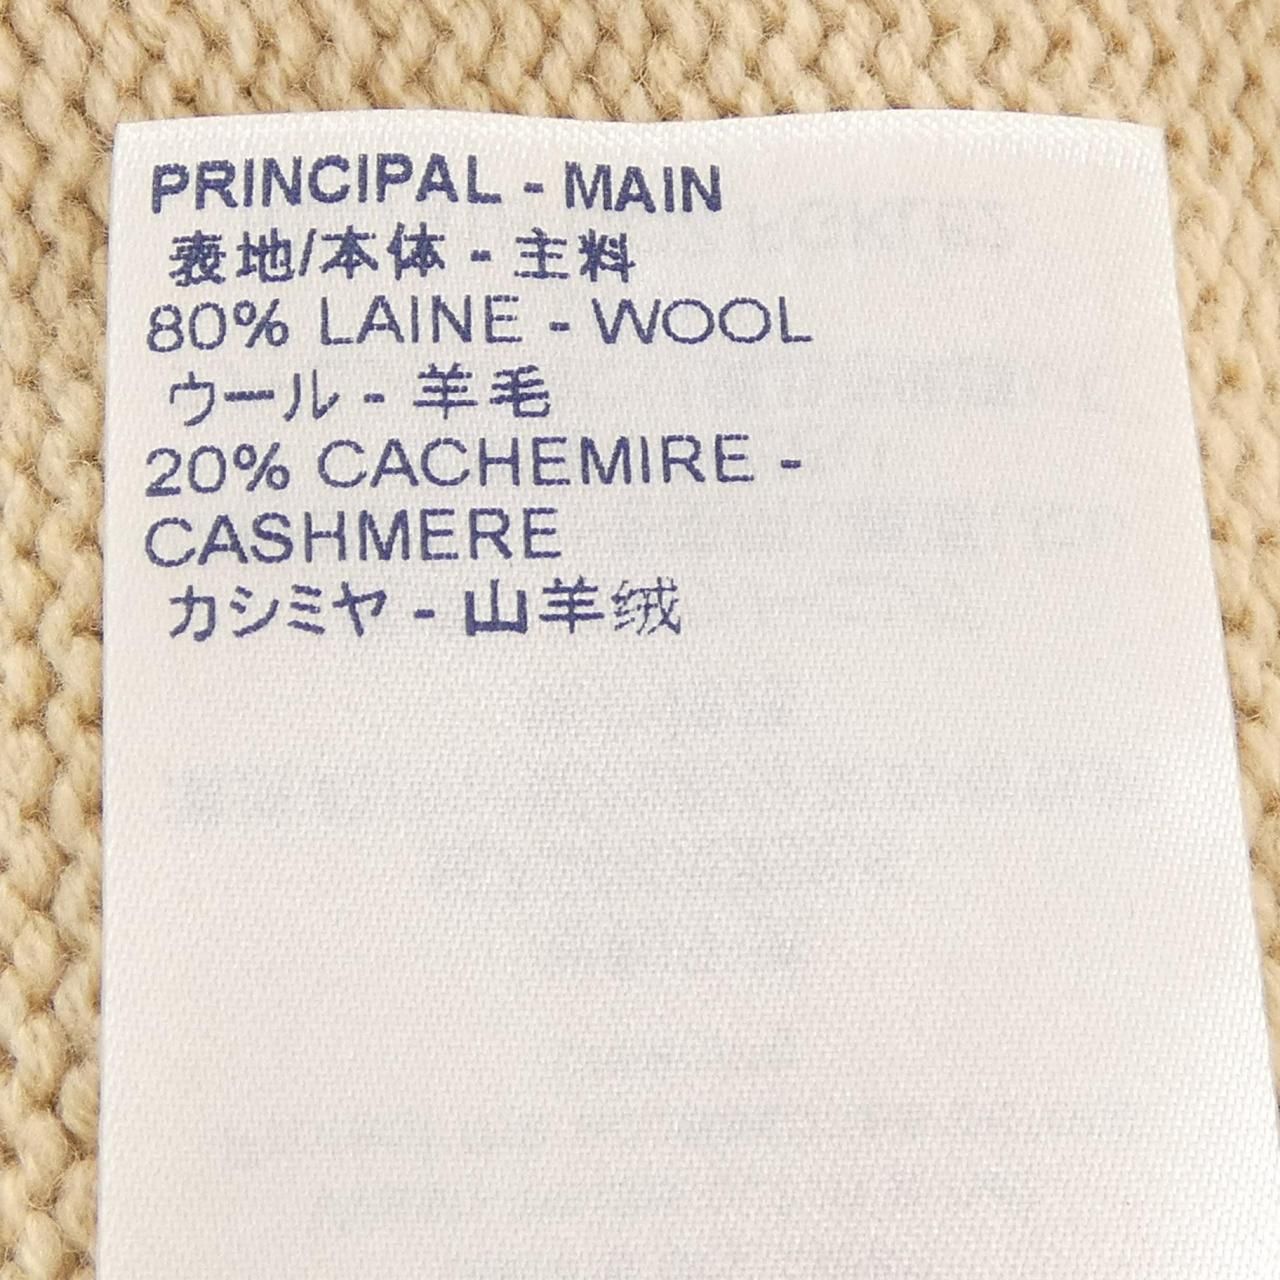 PRINCIPAL - MAIN
表地/本体 - 主料
80% LAINE - WOOL
ウール - 羊毛
20% CACHEMIRE -
CASHMERE
カシミヤ - 山羊绒